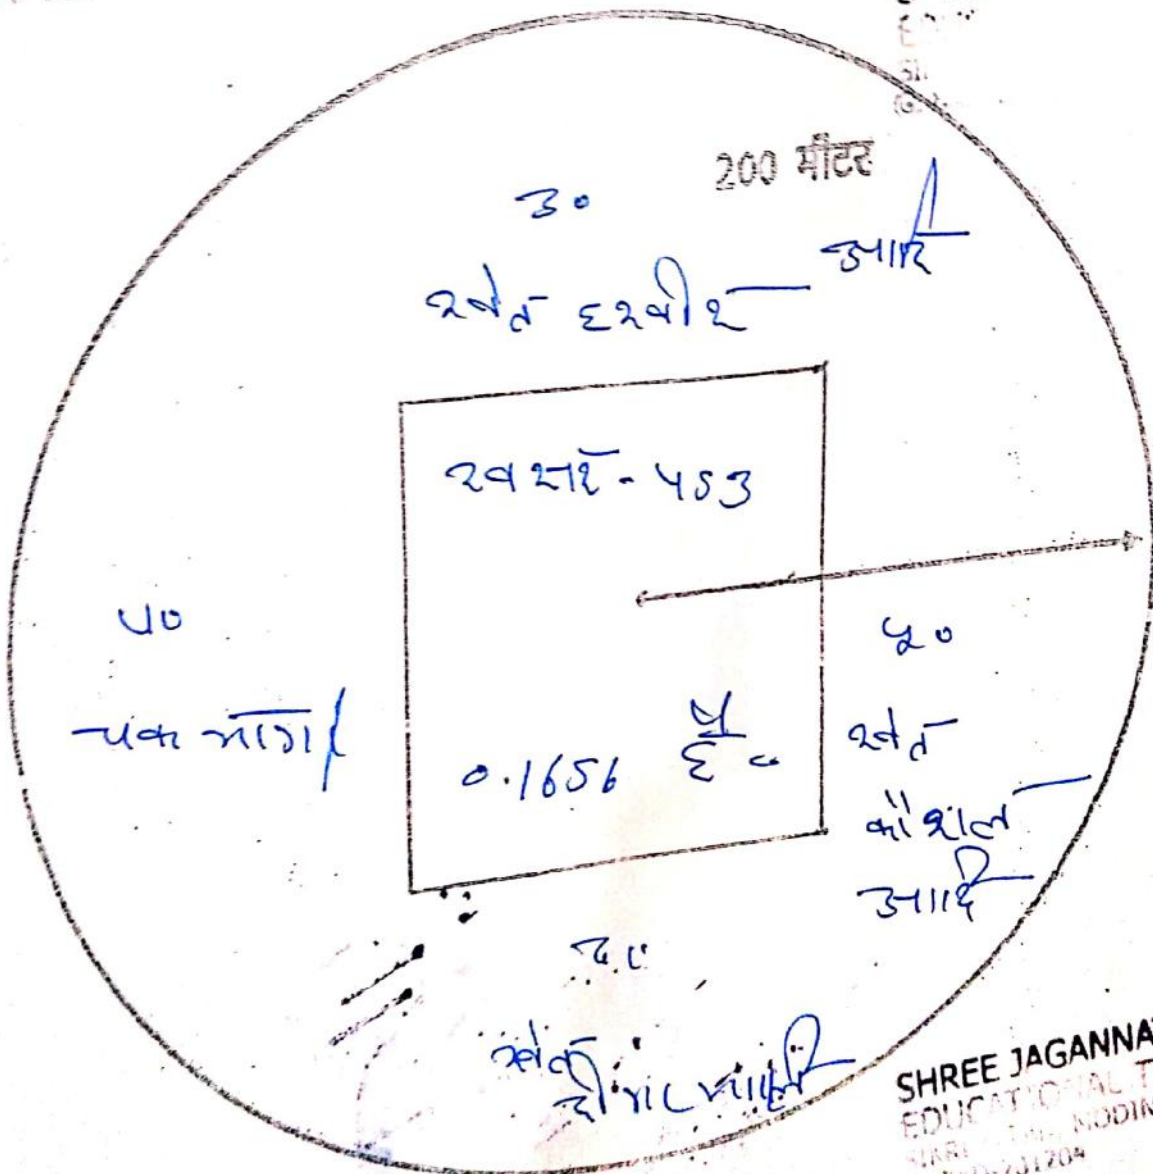 200 मीटर
उ०
खेत हरवीर आदि
खसरा - 453
प०
पू०
चक मार्ग
0.1656 हे०
खेत
कौशल
आदि
द०
खेत
SHREE JAGANNA
EDUCATIONAL T
MODIN